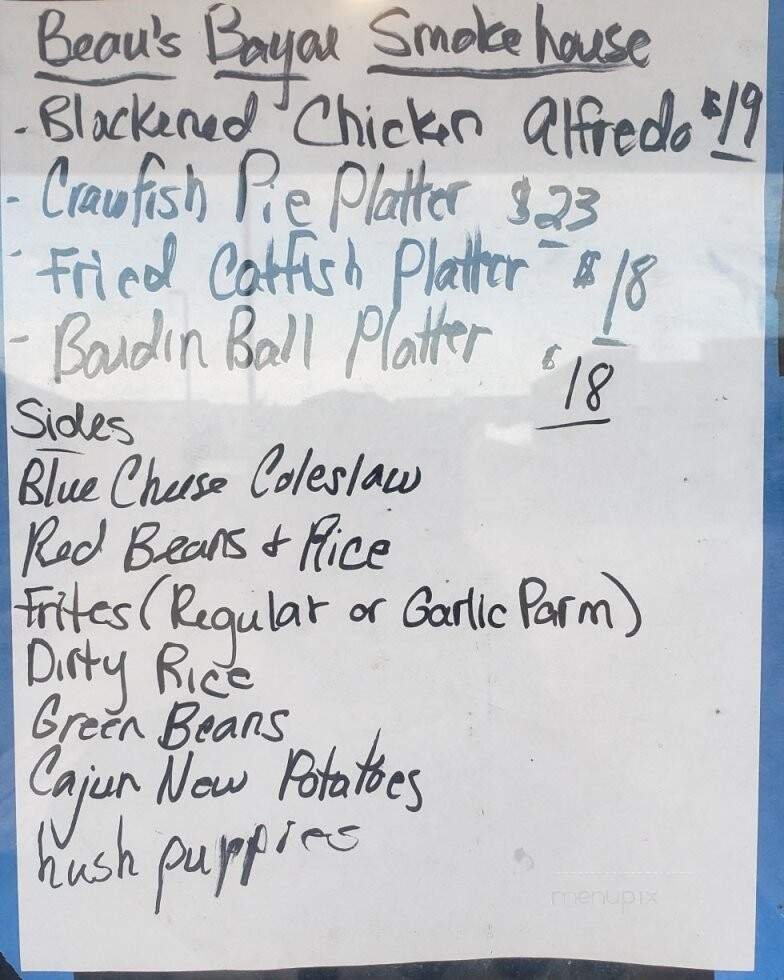 Beau's Bayou Smokehouse
- Blackened Chicken Alfredo $19
- Crawfish Pie Platter $23
- Fried Catfish Platter $18
- Boudin Ball Platter $18
Sides
Blue Cheese Coleslaw
Red Beans + Rice
Frites (Regular or Garlic Parm)
Dirty Rice
Green Beans
Cajun New Potatoes
hush puppies
menupix